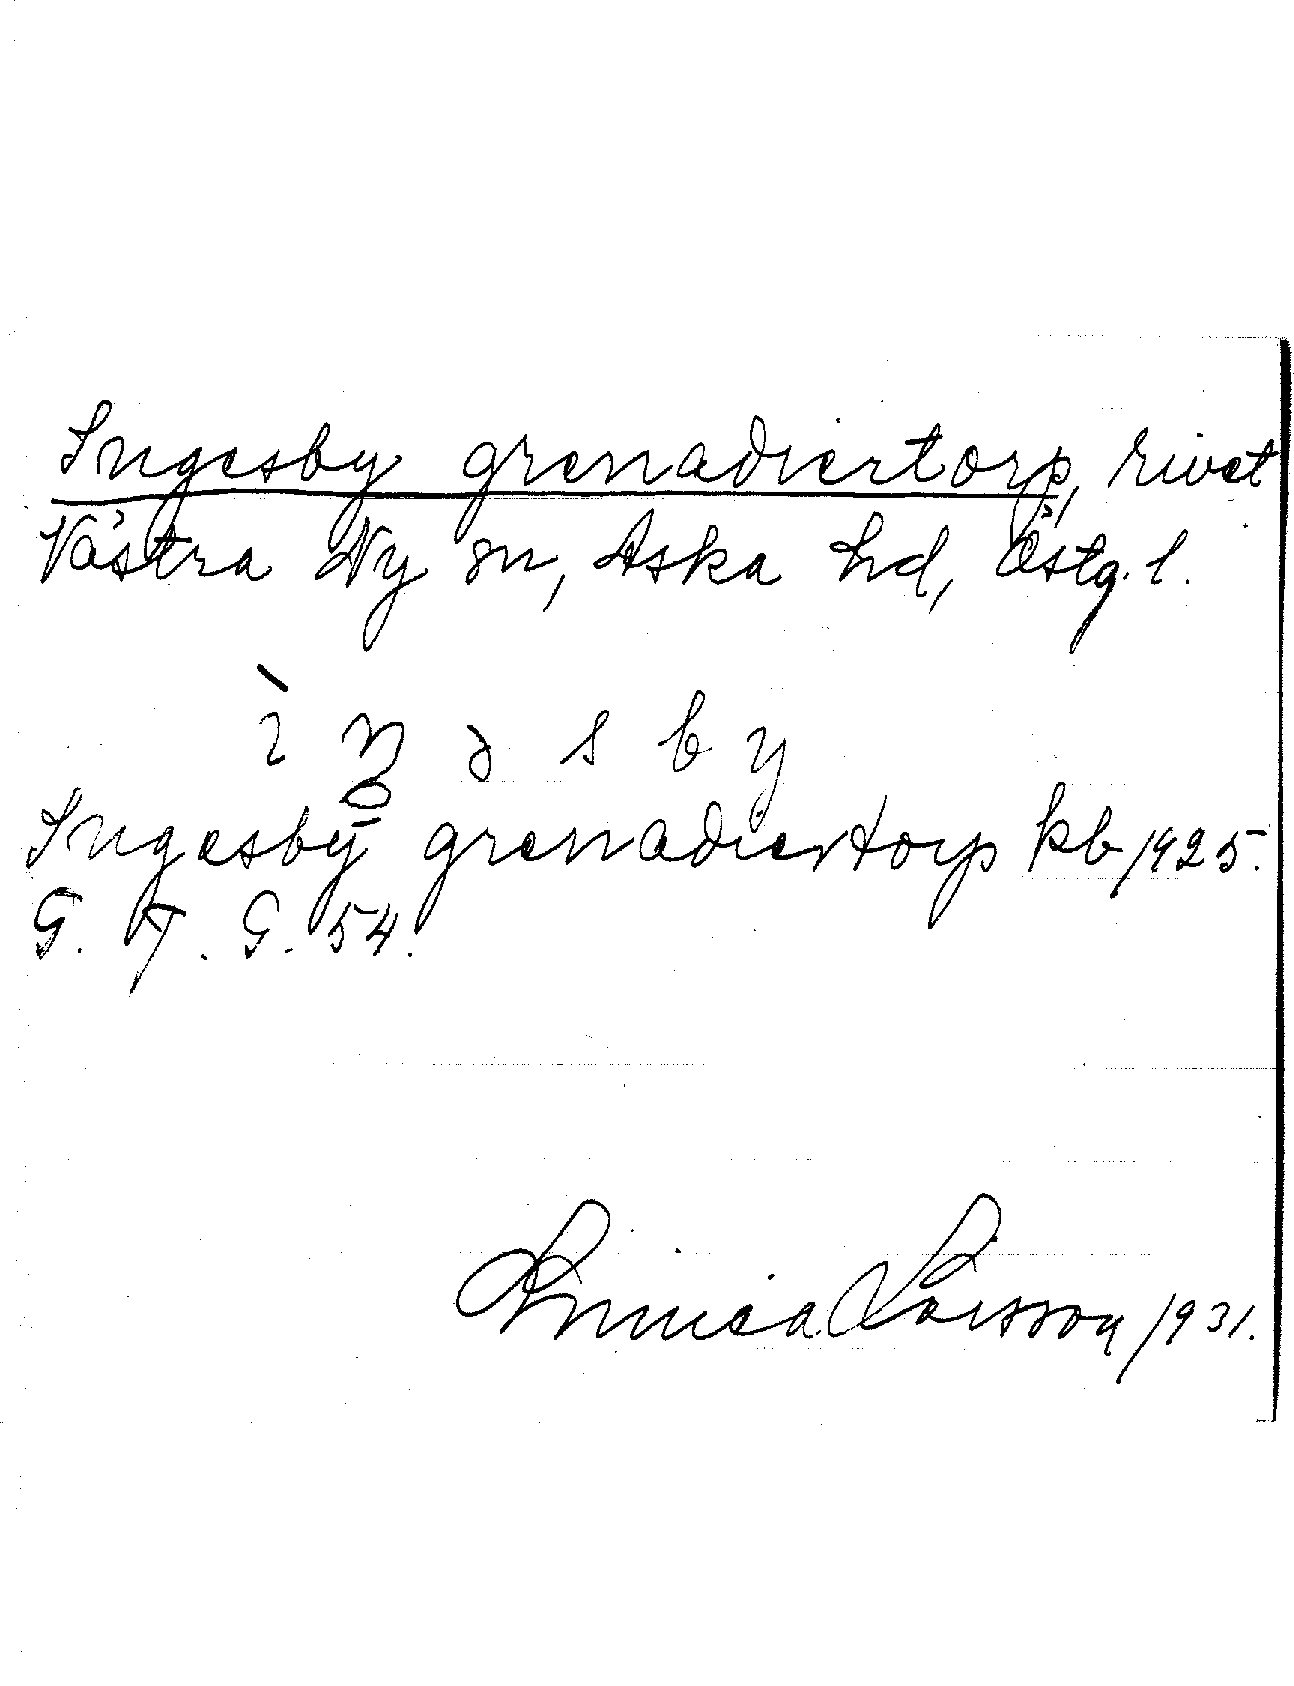 Ingesby grenadiertorp, rivet
Västra Ny sn, Aska hd, Östg. l.
ì ŋ ə s b y
Ingesby grenadiertorp kb 1925.
G. T. G. 54.
Linnea Larsson 1931.